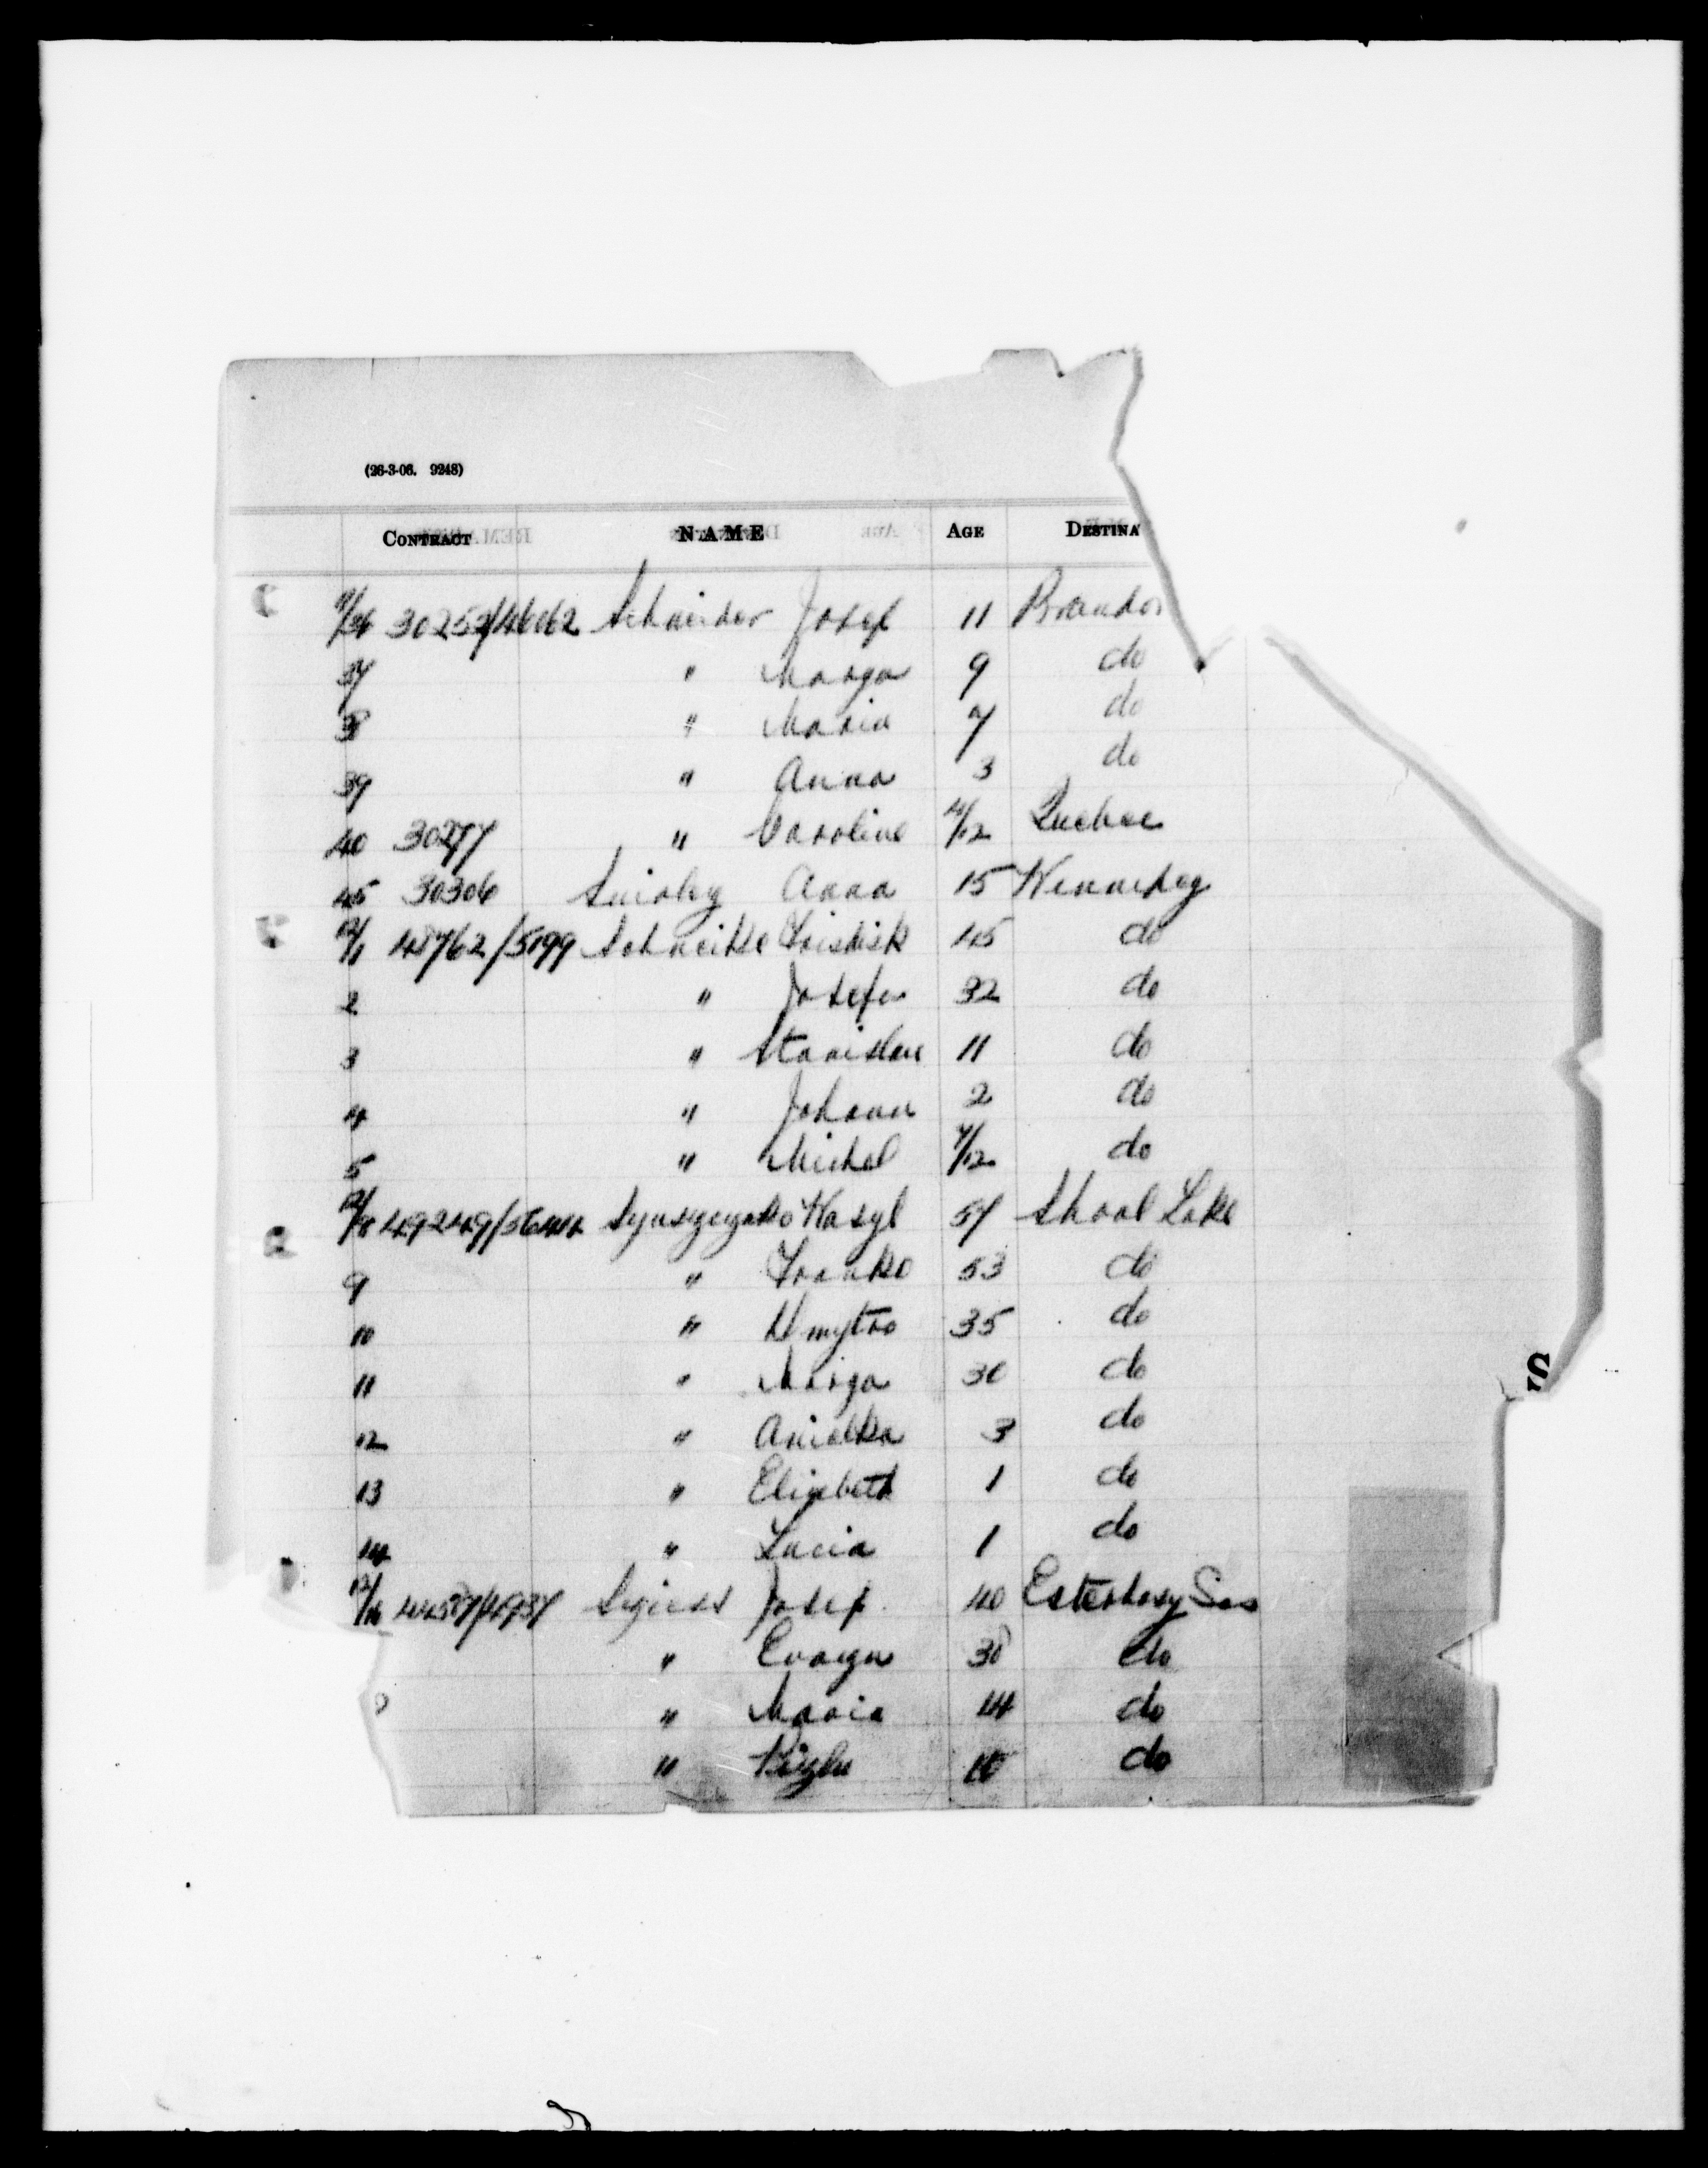 (26-3-06. 9248)
CONTRACT NAME AGE DESTINA
11/36 30253/46062 Schneider Josef 11 Brandon
37 " Marya 9 do
38 " Maria 7 do
39 " Anna 3 do
40 30277 " Caroline 4/12 Quebec
45 30306 Anna 15 Winnipeg
12/1 48762/5199 45 do
2 " Josefa 32 do
3 " Stanislau 11 do
4 " Johann 2 do
5 " Michel 7/12 do
12/8 Wasyl 57 Shoal Lake
9 " Franko 53 do
10 " Dmytro 35 do
11 " Marya 30 do
12 " Anielka 3 do
13 " Elizabeth 1 do
14 " Lucia 1 do
12/16 Josef 40 Esterhasy Sas
" 38 do
" Maria 14 do
" do
S